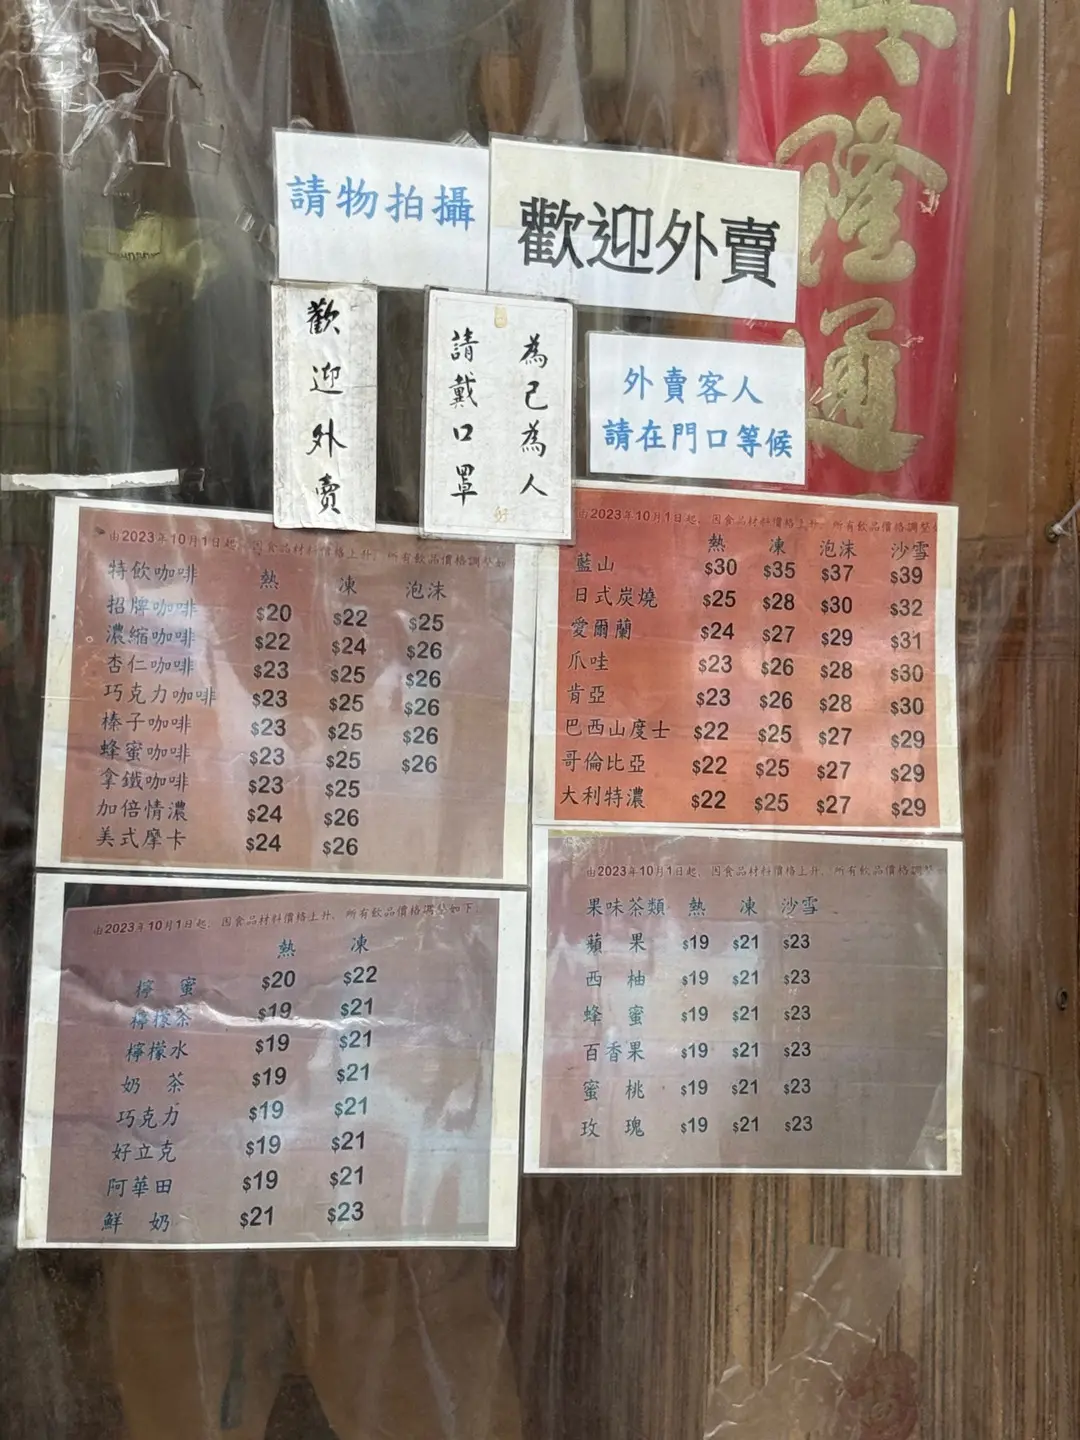 興隆通
請物拍攝
歡迎外賣
歡迎外賣
為己為人
請戴口罩
外賣客人
請在門口等候
由2023年10月1日起，因食品材料價格上升，所有飲品價格調整如
特飲咖啡 熱 凍 泡沫
招牌咖啡 $20 $22 $25
濃縮咖啡 $22 $24 $26
杏仁咖啡 $23 $25 $26
巧克力咖啡 $23 $25 $26
榛子咖啡 $23 $25 $26
蜂蜜咖啡 $23 $25 $26
拿鐵咖啡 $23 $25
加倍情濃 $24 $26
美式摩卡 $24 $26
由2023年10月1日起，因食品材料價格上升，所有飲品價格調整如
熱 凍 泡沫 沙雪
藍山 $30 $35 $37 $39
日式炭燒 $25 $28 $30 $32
愛爾蘭 $24 $27 $29 $31
爪哇 $23 $26 $28 $30
肯亞 $23 $26 $28 $30
巴西山度士 $22 $25 $27 $29
哥倫比亞 $22 $25 $27 $29
大利特濃 $22 $25 $27 $29
由2023年10月1日起，因食品材料價格上升，所有飲品價格調整如下：
熱 凍
檸 蜜 $20 $22
檸檬茶 $19 $21
檸檬水 $19 $21
奶 茶 $19 $21
巧克力 $19 $21
好立克 $19 $21
阿華田 $19 $21
鮮 奶 $21 $23
由2023年10月1日起，因食品材料價格上升，所有飲品價格調整
果味茶類 熱 凍 沙雪
蘋 果 $19 $21 $23
西 柚 $19 $21 $23
蜂 蜜 $19 $21 $23
百香果 $19 $21 $23
蜜 桃 $19 $21 $23
玫 瑰 $19 $21 $23